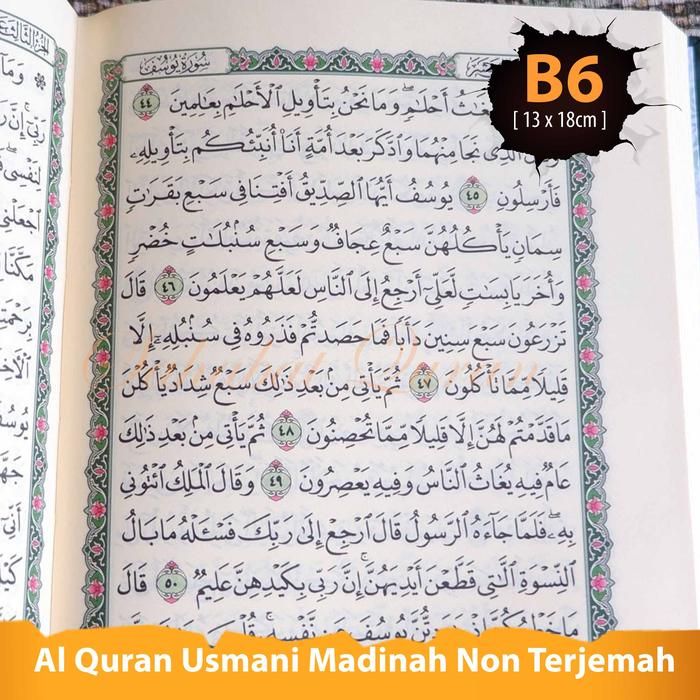 سُورَةُ يُوسُفَ
B6
[ 13 x 18cm ]
أَحْلَٰمٖۖ وَمَا نَحۡنُ بِتَأۡوِيلِ ٱلۡأَحۡلَٰمِ بِعَٰلِمِينَ ٤٤
ٱلَّذِي نَجَا مِنۡهُمَا وَٱدَّكَرَ بَعۡدَ أُمَّةٍ أَنَا۠ أُنَبِّئُكُم بِتَأۡوِيلِهِۦ
فَأَرۡسِلُونِ ٤٥ يُوسُفُ أَيُّهَا ٱلصِّدِّيقُ أَفۡتِنَا فِي سَبۡعِ بَقَرَٰتٖ
سِمَانٖ يَأۡكُلُهُنَّ سَبۡعٌ عِجَافٞ وَسَبۡعِ سُنۢبُلَٰتٍ خُضۡرٖ
وَأُخَرَ يَابِسَٰتٖ لَّعَلِّيٓ أَرۡجِعُ إِلَى ٱلنَّاسِ لَعَلَّهُمۡ يَعۡلَمُونَ ٤٦ قَالَ
تَزۡرَعُونَ سَبۡعَ سِنِينَ دَأَبٗا فَمَا حَصَدتُّمۡ فَذَرُوهُ فِي سُنۢبُلِهِۦٓ إِلَّا
قَلِيلٗا مِّمَّا تَأۡكُلُونَ ٤٧ ثُمَّ يَأۡتِي مِنۢ بَعۡدِ ذَٰلِكَ سَبۡعٞ شِدَادٞ يَأۡكُلۡنَ
مَا قَدَّمۡتُمۡ لَهُنَّ إِلَّا قَلِيلٗا مِّمَّا تُحۡصِنُونَ ٤٨ ثُمَّ يَأۡتِي مِنۢ بَعۡدِ ذَٰلِكَ
عَامٞ فِيهِ يُغَاثُ ٱلنَّاسُ وَفِيهِ يَعۡصِرُونَ ٤٩ وَقَالَ ٱلۡمَلِكُ ٱئۡتُونِي
بِهِۦۖ فَلَمَّا جَآءَهُ ٱلرَّسُولُ قَالَ ٱرۡجِعۡ إِلَىٰ رَبِّكَ فَسۡـَٔلۡهُ مَا بَالُ
ٱلنِّسۡوَةِ ٱلَّٰتِي قَطَّعۡنَ أَيۡدِيَهُنَّۚ إِنَّ رَبِّي بِكَيۡدِهِنَّ عَلِيمٞ ٥٠ قَالَ
Al Quran Usmani Madinah Non Terjemah